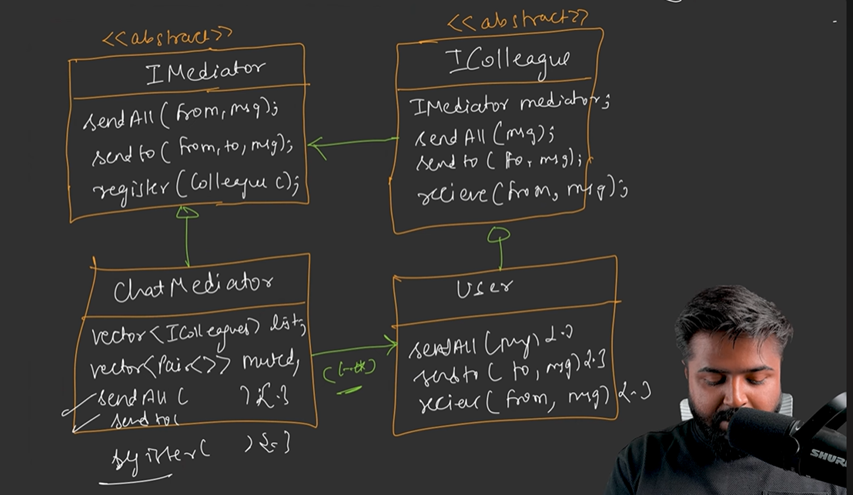 <<abstract>>
IMediator
sendAll(from, msg);
sendto(from, to, msg);
register(Colleague c);
<<abstract>>
IColleague
IMediator mediator;
sendAll(msg);
sendto(to, msg);
recieve(from, msg);
ChatMediator
vector<IColleagues> list;
vector<Pair<>> muted;
sendAll( ){..}
sendto(
register( ){..}
(1-*)
User
sendAll(msg){..}
sendto(to, msg){..}
reciev(from, msg){..}
SHURE